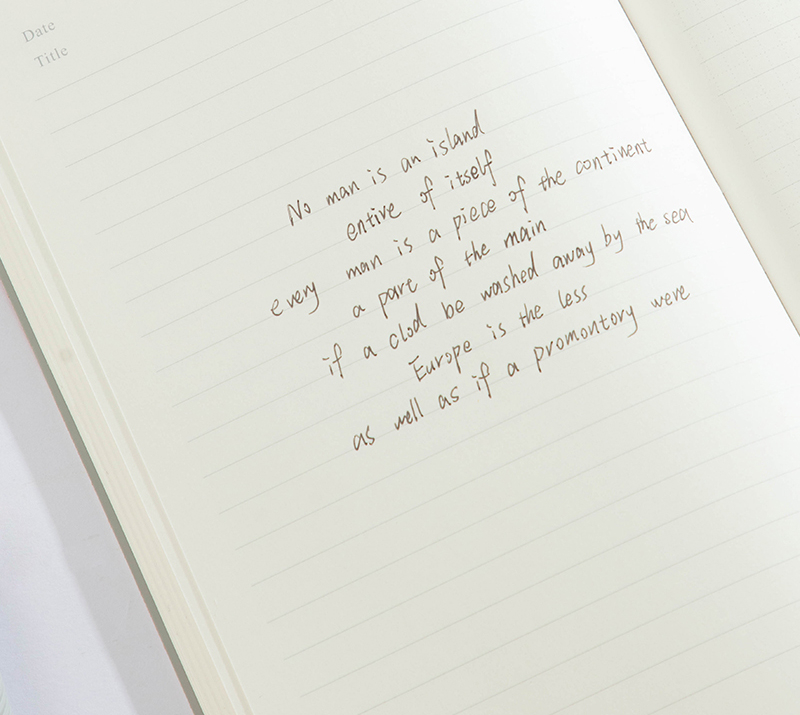 Date
Title
No man is an island
entire of itself
every man is a piece of the continent
a part of the main
if a clod be washed away by the sea
Europe is the less
as well as if a promontory were